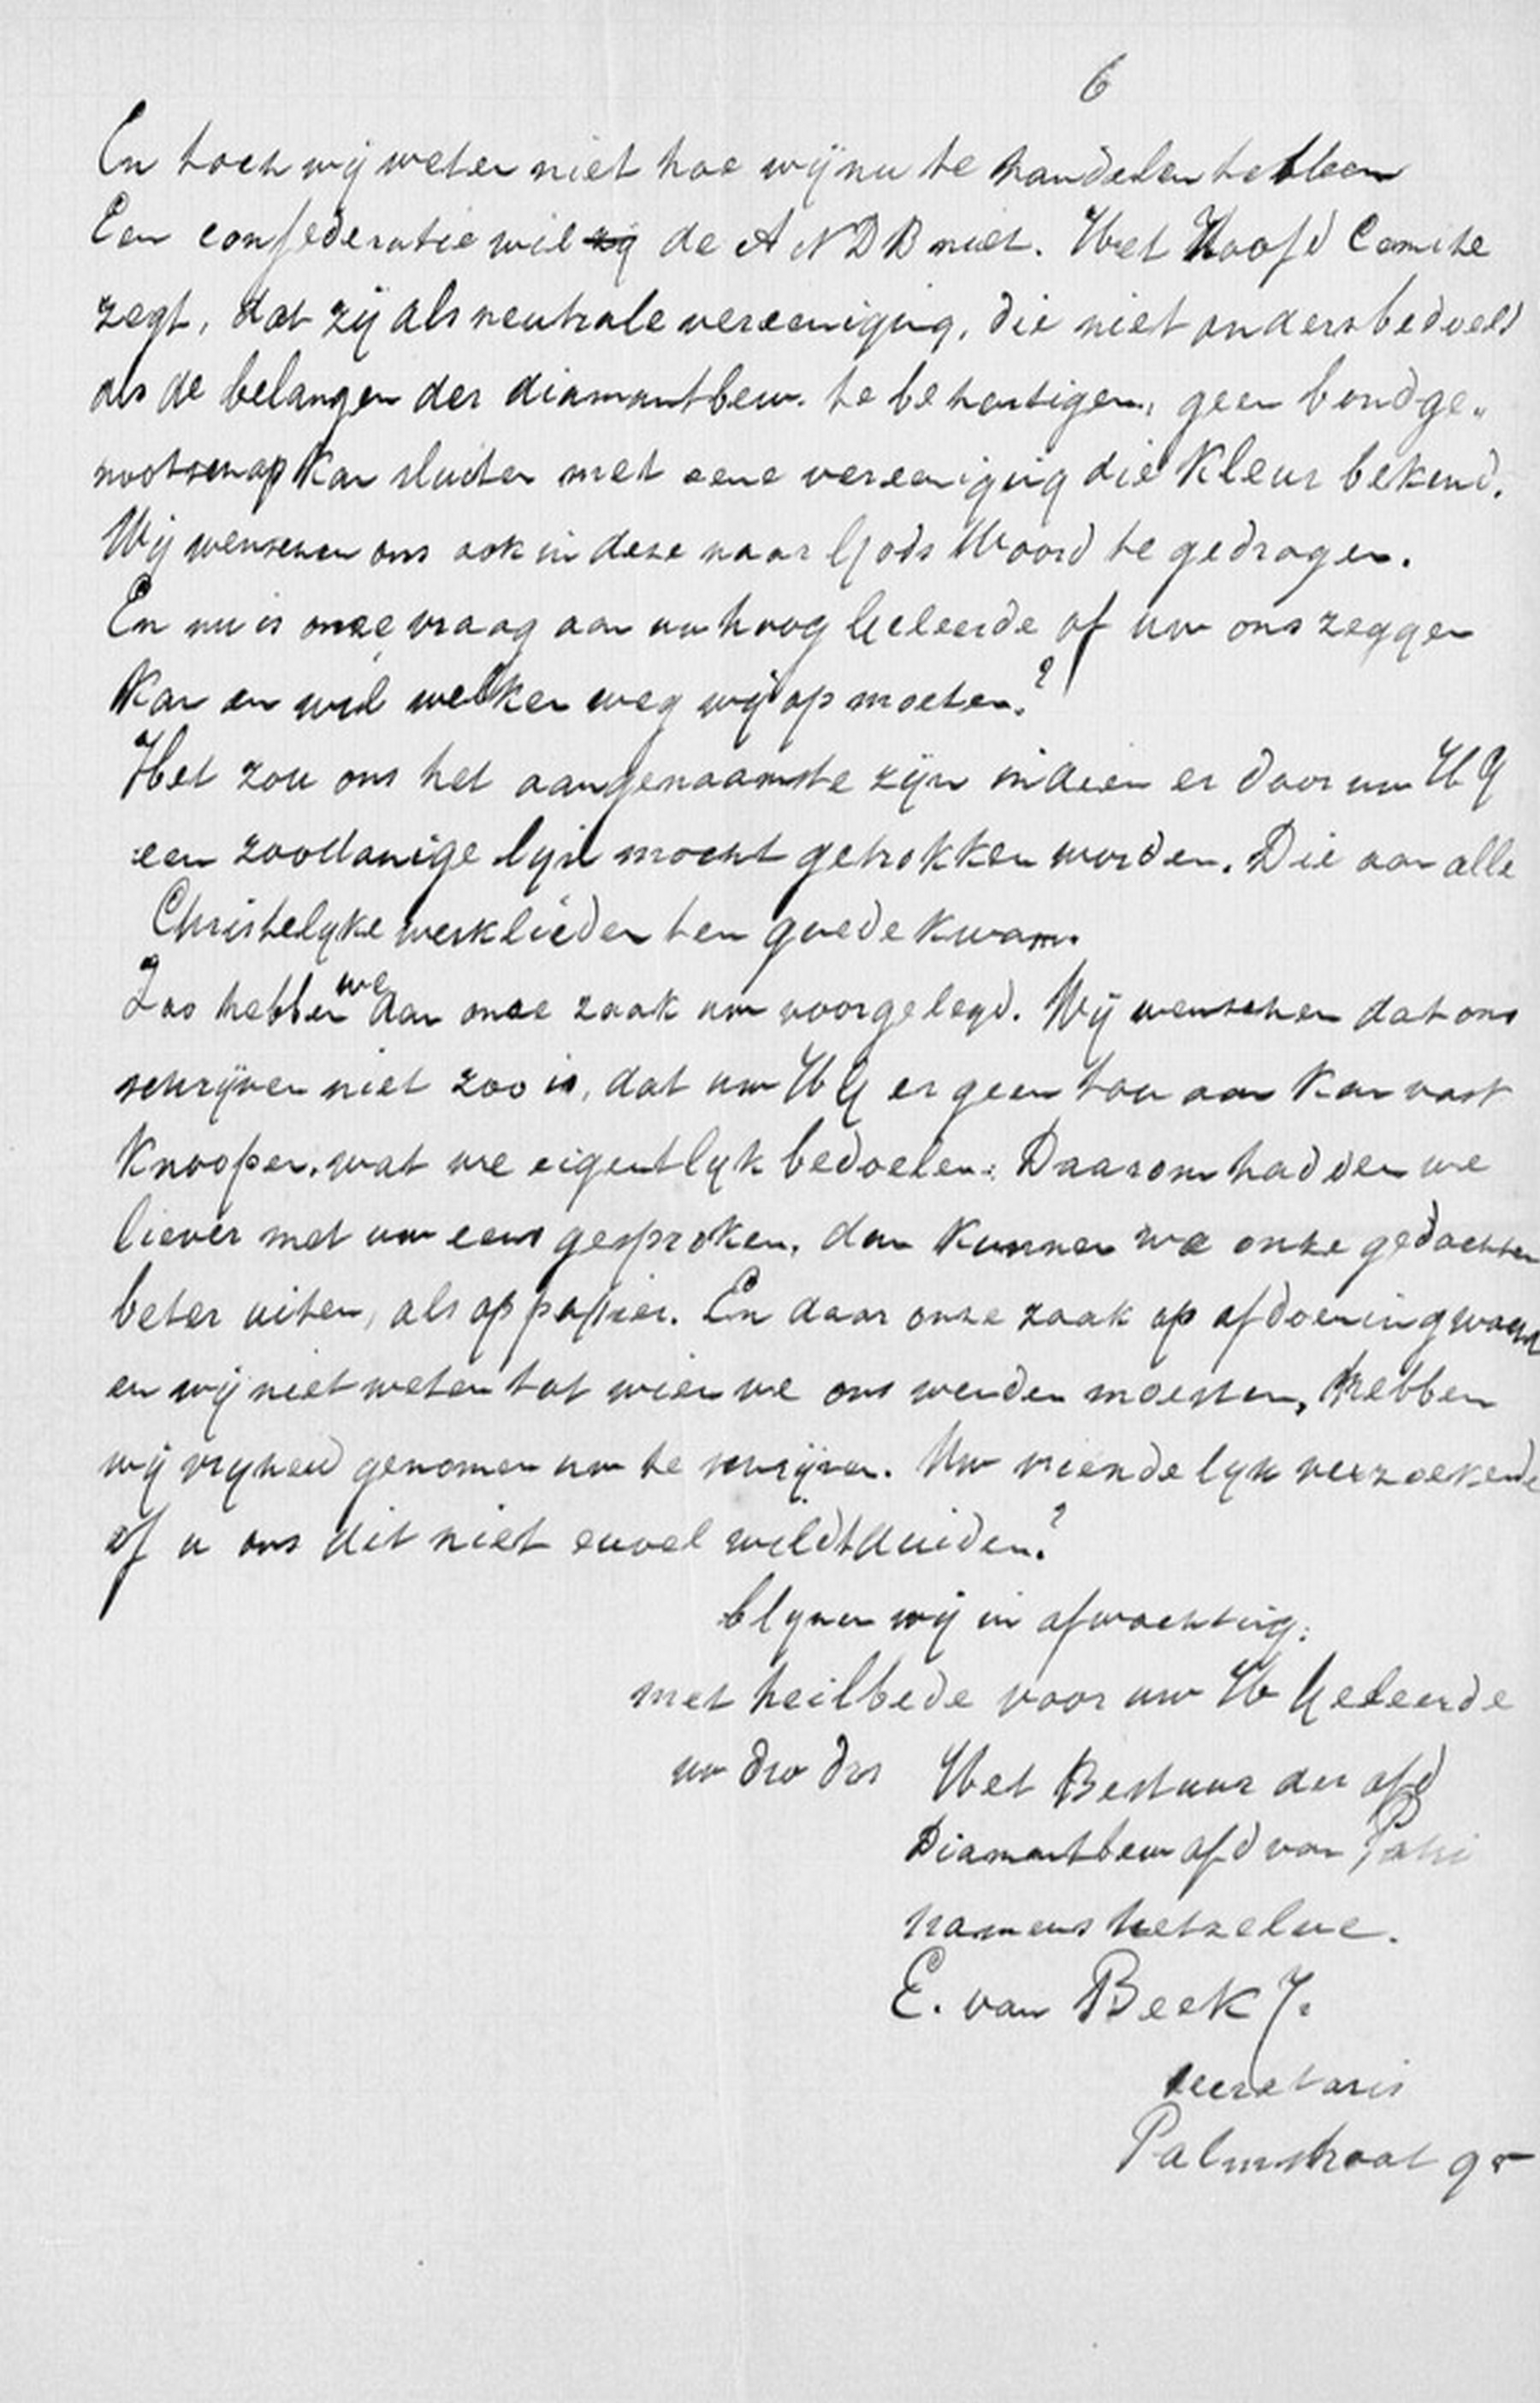 6
En toch wij weten niet hoe wij nu te handelen hebben
Een confederatie wil zij de A N D B niet. Het Hoofd Comite
zegt, dat zij als neutrale vereeniging, die niet anders bedoeld
als de belangen der diamantbew. te behartigen, geen bondge„
nootschap kan sluiten met eene vereeniging die kleur bekend.
Wij wenschen ons ook in deze naar Gods Woord te gedragen.
En nu is onze vraag aan uw hoog Geleerde of uw ons zeggen
kan en wil welken weg wij op moeten?
Het zou ons het aangenaamste zijn indien er door uw H G
een zoodanige lijn mocht getrokken worden. Die aan alle
Christelyke werklieden ten goede kwam.
Zoo hebben we dan onze zaak uw voorgelegd. Wij wenschen dat ons
schrijven niet zoo is, dat uw H G er geen tou aan kan vast
knoopen. wat we eigentlyk bedoelen. Daarom hadden we
liever met uw eens gesproken, dan kunnen we onze gedachten
beter uiten, als op papier. En daar onze zaak op afdoening
en wij niet weten tot wien we ons wenden moesten, hebben
wij vryheid genomen uw te schrijven. Uw vriendelyk verzoekende
of u ons dit niet euvel wildt duiden?
blyven wij in afwachting:
met heilbede voor uw H Geleerde
uw dw drs Het Bestuur der afd
Diamantbew afd van Patri
namens hetzelve.
E. van Beek J.
secretaris
Palmstraat